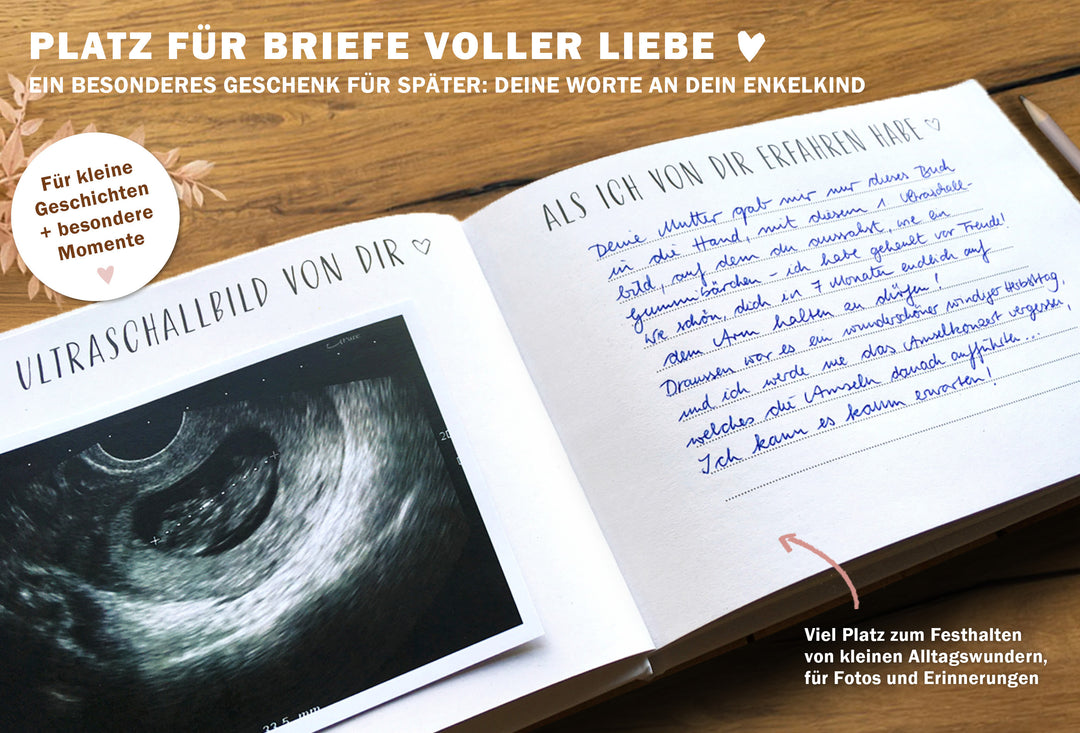 PLATZ FÜR BRIEFE VOLLER LIEBE
EIN BESONDERES GESCHENK FÜR SPÄTER: DEINE WORTE AN DEIN ENKELKIND
Für kleine
Geschichten
+ besondere
Momente
ULTRASCHALLBILD VON DIR
20
22.5 mm
ALS ICH VON DIR ERFAHREN HABE
Deine Mutter gab mir nur dieses Buch
in die Hand, mit diesem 1. Ultraschall-
bild, auf dem du aussahst, wie ein
Gummibärchen – ich habe geheult vor Freude!
Wie schön, dich in 7 Monaten endlich auf
dem Arm halten zu dürfen!
Draussen war es ein wunderschöner windiger Herbsttag,
und ich werde nie das Amselkonzert vergessen,
welches die Amseln danach aufführten...
Ich kann es kaum erwarten!
Viel Platz zum Festhalten
von kleinen Alltagswundern,
für Fotos und Erinnerungen